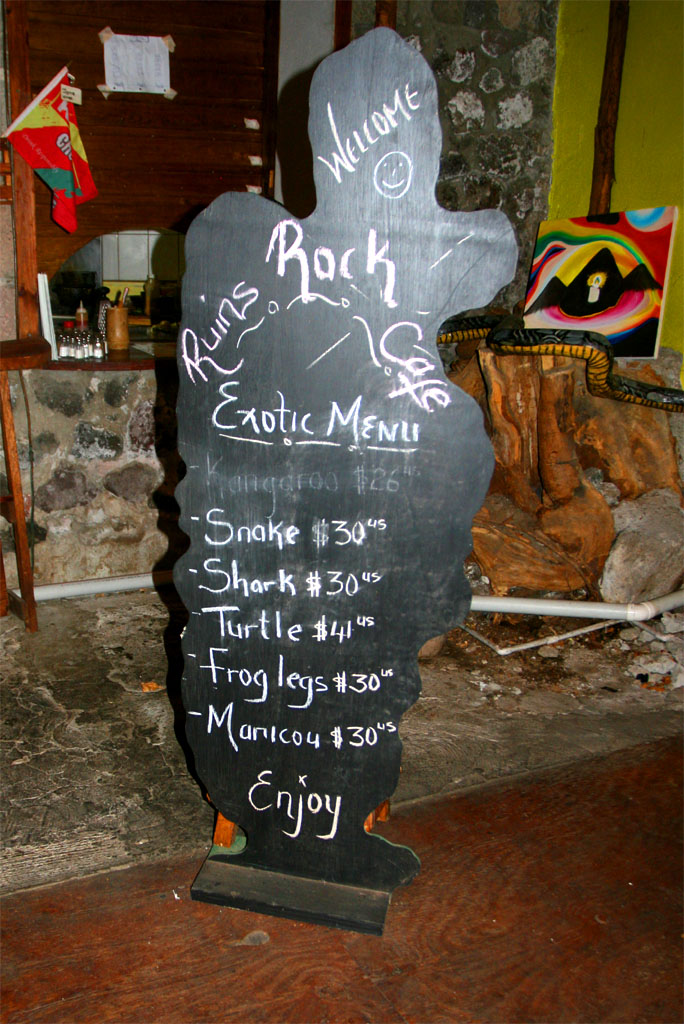 WELCOME
Rock
Ruins
Cafe
Exotic Menu
- Kangaroo $26 us
- Snake $30 us
- Shark $30 us
- Turtle $41 us
- Frog legs $30 us
- Manicou $30 us
Enjoy